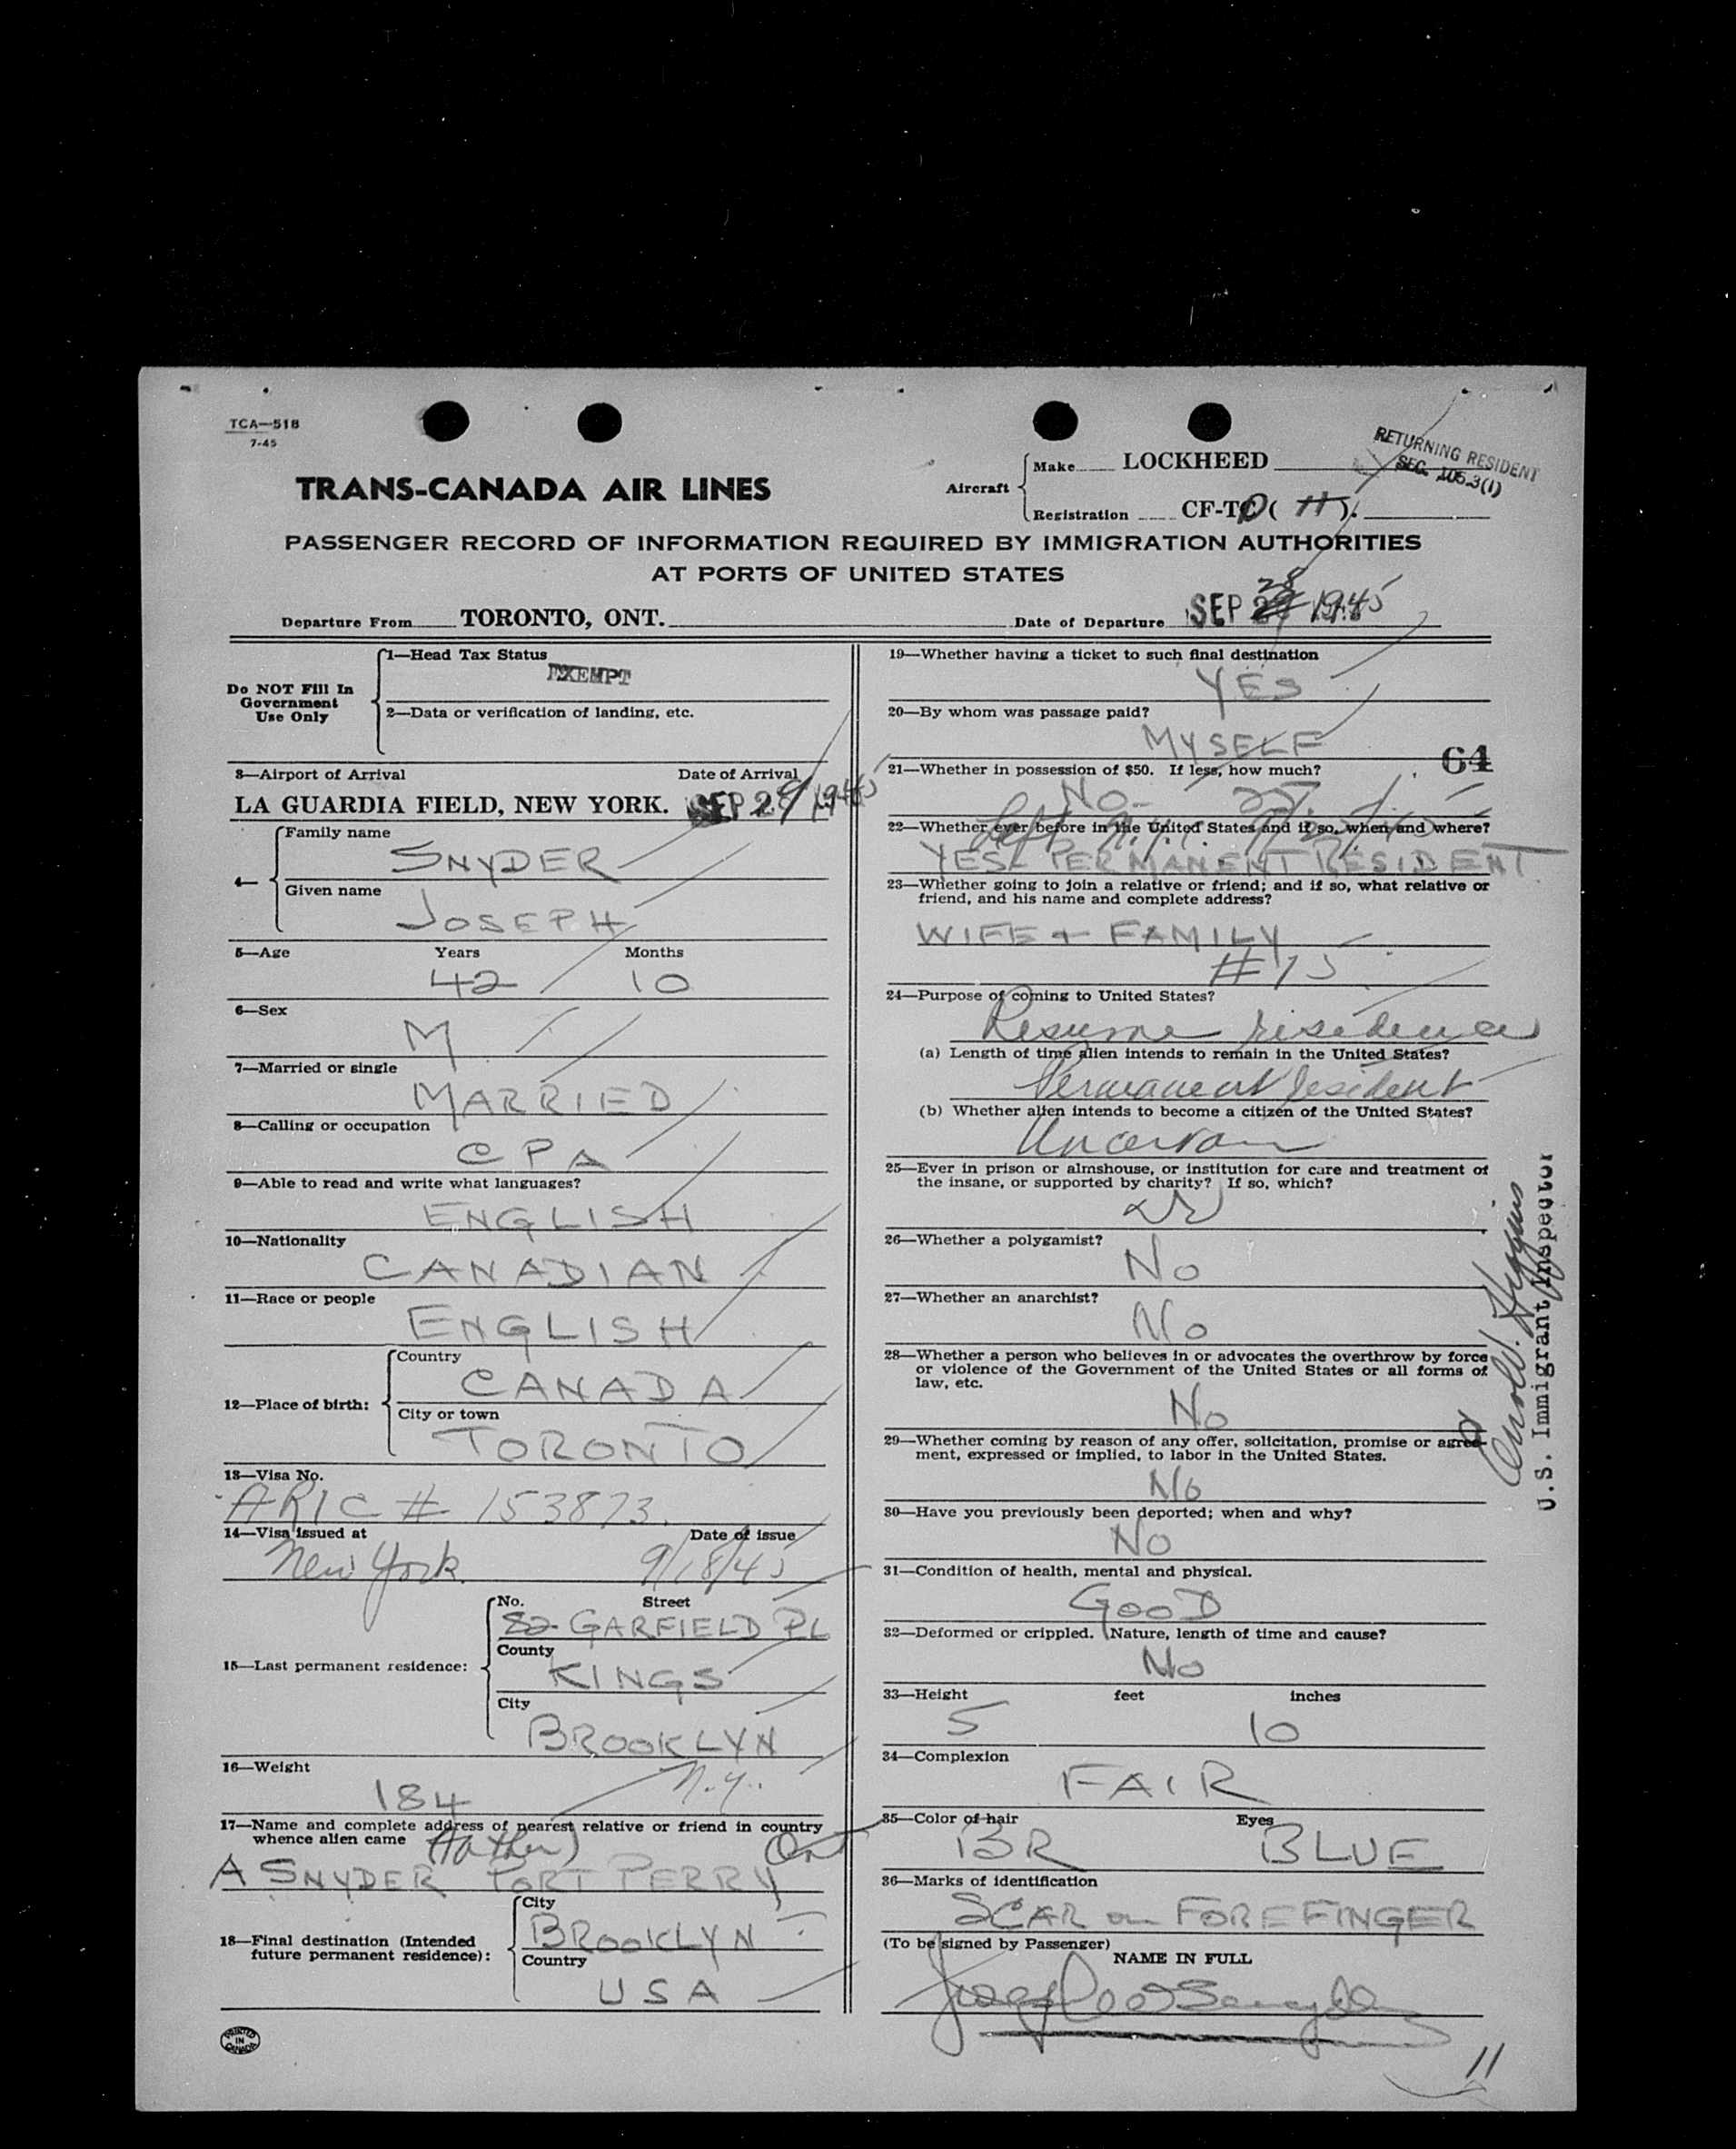 TCA—518
7-45
RETURNING RESIDENT
SEC. 105.3(1)
TRANS-CANADA AIR LINES
Aircraft
Make LOCKHEED
Registration CF-T ( 11 ).
PASSENGER RECORD OF INFORMATION REQUIRED BY IMMIGRATION AUTHORITIES
AT PORTS OF UNITED STATES
Departure From TORONTO, ONT.
Date of Departure SEP 28 1945
Do NOT Fill In
Government
Use Only
1—Head Tax Status
EXEMPT
2—Data or verification of landing, etc.
3—Airport of Arrival Date of Arrival
LA GUARDIA FIELD, NEW YORK. SEP 28 1945
4—
Family name
SNYDER
Given name
JOSEPH
5—Age Years Months
42 10
6—Sex
M
7—Married or single
MARRIED
8—Calling or occupation
CPA
9—Able to read and write what languages?
ENGLISH
10—Nationality
CANADIAN
11—Race or people
ENGLISH
12—Place of birth:
Country
CANADA
City or town
TORONTO
13—Visa No.
ARIC # 153873.
14—Visa issued at Date of issue
New York. 9/18/45
15—Last permanent residence:
No. Street
82 GARFIELD PL
County
KINGS
City
BROOKLYN
N.Y.
16—Weight
184
17—Name and complete address of nearest relative or friend in country
whence alien came (Father) Ont
A SNYDER PORT PERRY
18—Final destination (Intended
future permanent residence):
City
BROOKLYN
Country
USA
PRINTED
IN
CANADA
19—Whether having a ticket to such final destination
YES
20—By whom was passage paid?
MYSELF
64
21—Whether in possession of $50. If less, how much?
No-
22—Whether ever before in the United States and if so, when and where?
Left N.Y.C.
YES- PERMANENT RESIDENT
23—Whether going to join a relative or friend; and if so, what relative or
friend, and his name and complete address?
WIFE + FAMILY
#15
24—Purpose of coming to United States?
Resume residence
(a) Length of time alien intends to remain in the United States?
Permanent resident
(b) Whether alien intends to become a citizen of the United States?
Uncertain
25—Ever in prison or almshouse, or institution for care and treatment of
the insane, or supported by charity? If so, which?
26—Whether a polygamist?
No
27—Whether an anarchist?
No
28—Whether a person who believes in or advocates the overthrow by force
or violence of the Government of the United States or all forms of
law, etc.
No
29—Whether coming by reason of any offer, solicitation, promise or agree-
ment, expressed or implied, to labor in the United States.
No
30—Have you previously been deported; when and why?
No
31—Condition of health, mental and physical.
GOOD
32—Deformed or crippled. Nature, length of time and cause?
No
33—Height feet inches
5 10
34—Complexion
FAIR
35—Color of hair Eyes
BR BLUE
36—Marks of identification
SCAR on FOREFINGER
(To be signed by Passenger)
NAME IN FULL
11
Higgins
U.S. Immigrant Inspector